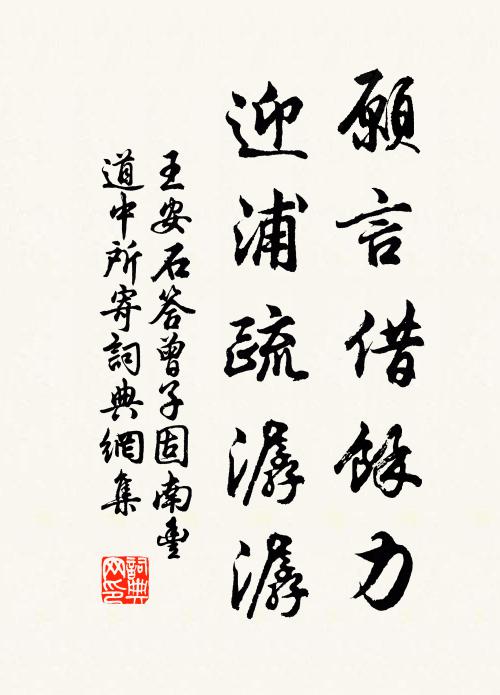 願言借餘力
迎浦疏潺潺
王安石答曾子固南豐
道中所寄詞典網集
詞典
网印